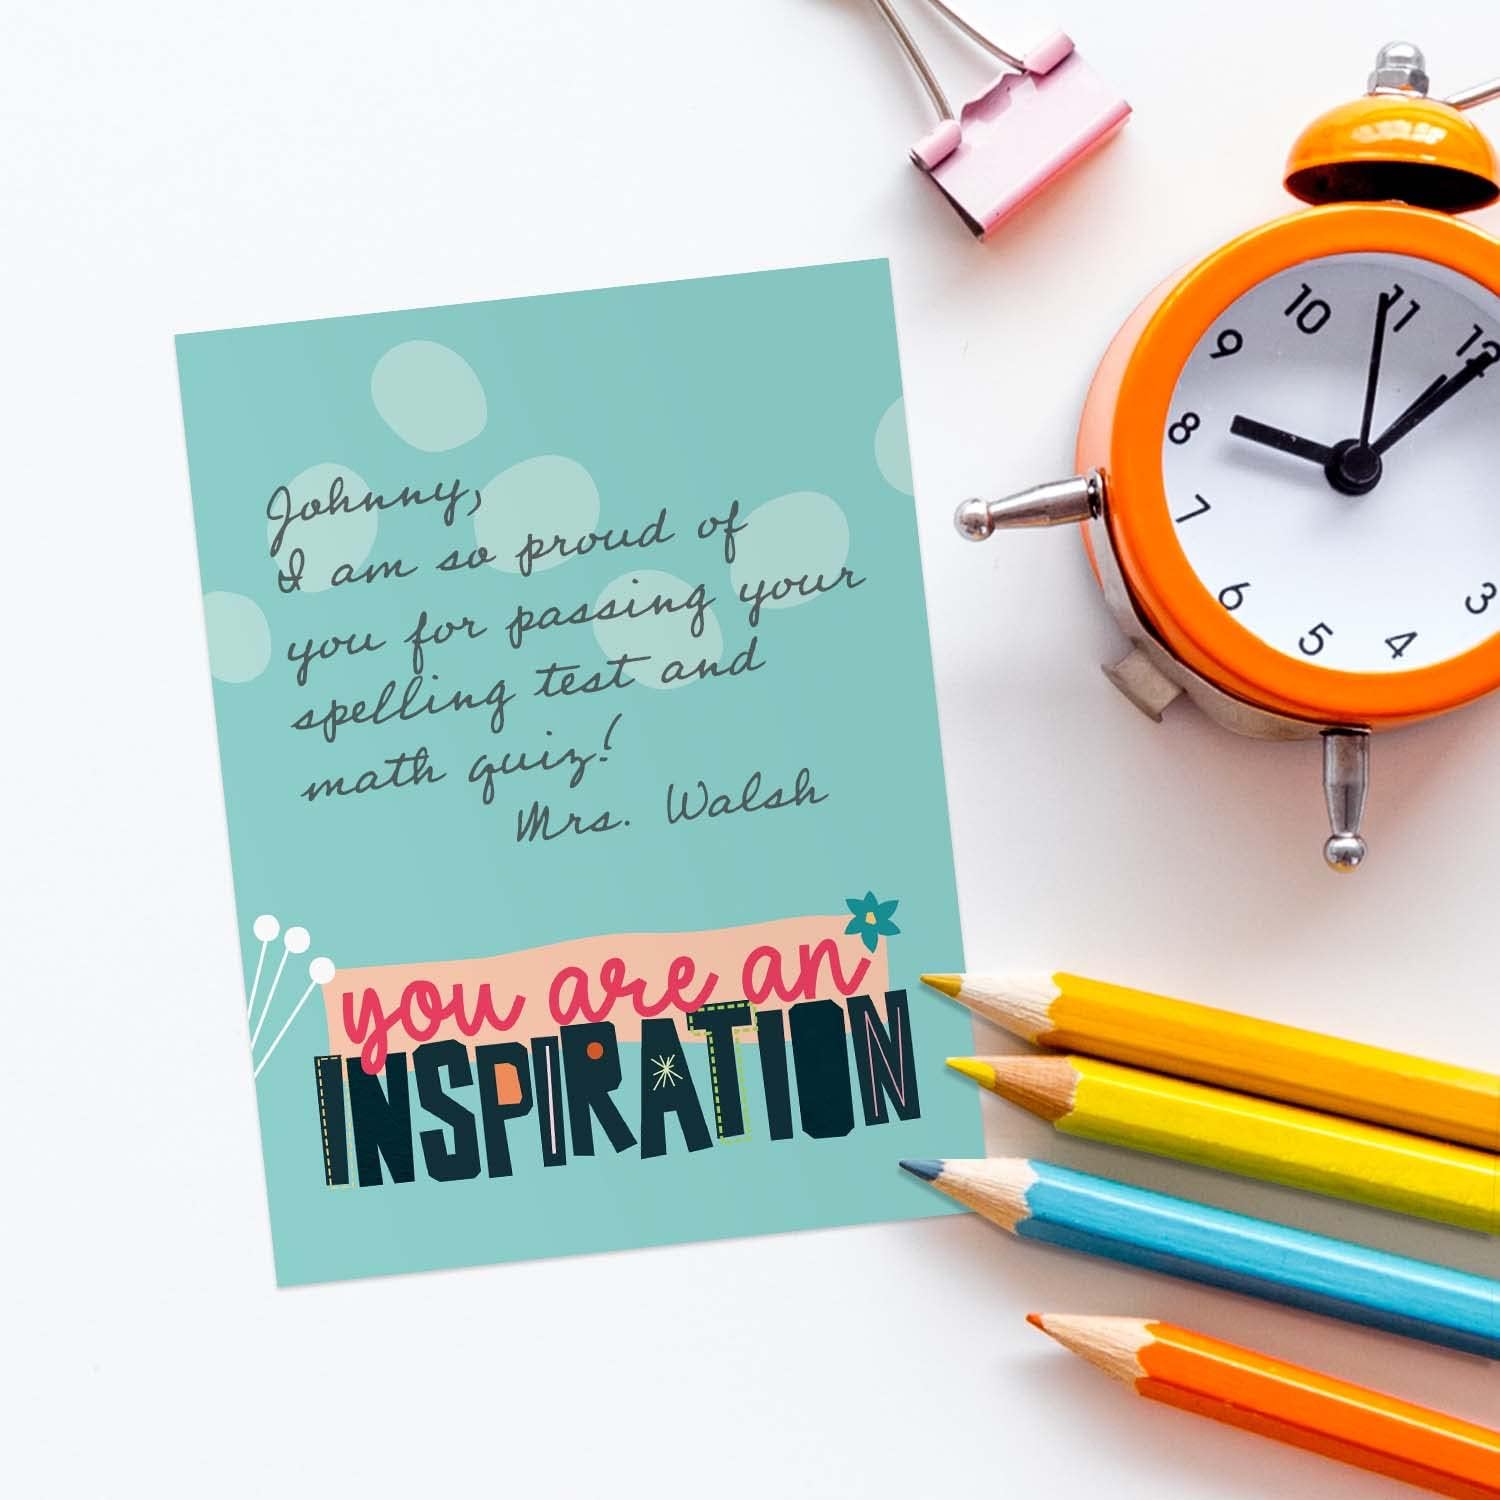 Johnny,
I am so proud of
you for passing your
spelling test and
math quiz!
Mrs. Walsh
you are an
INSPIRATION
10
11
12
9
8
7
6
5
4
3